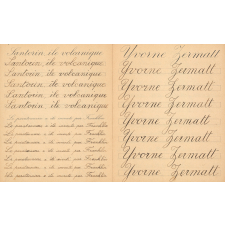 Santorin, île volcanique.
Santorin, île volcanique.
Santorin, île volcanique.
Santorin, île volcanique.
Santorin, île volcanique.
Santorin, île volcanique.
Le paratonnerre a été inventé par Franklin.
Le paratonnerre a été inventé par Franklin.
Le paratonnerre a été inventé par Franklin.
Le paratonnerre a été inventé par Franklin.
Le paratonnerre a été inventé par Franklin.
Le paratonnerre a été inventé par Franklin.
Yvorne Zermatt
Yvorne Zermatt
Yvorne Zermatt
Yvorne Zermatt
Yvorne Zermatt
Yvorne Zermatt
Yvorne Zermatt
Yvorne Zermatt